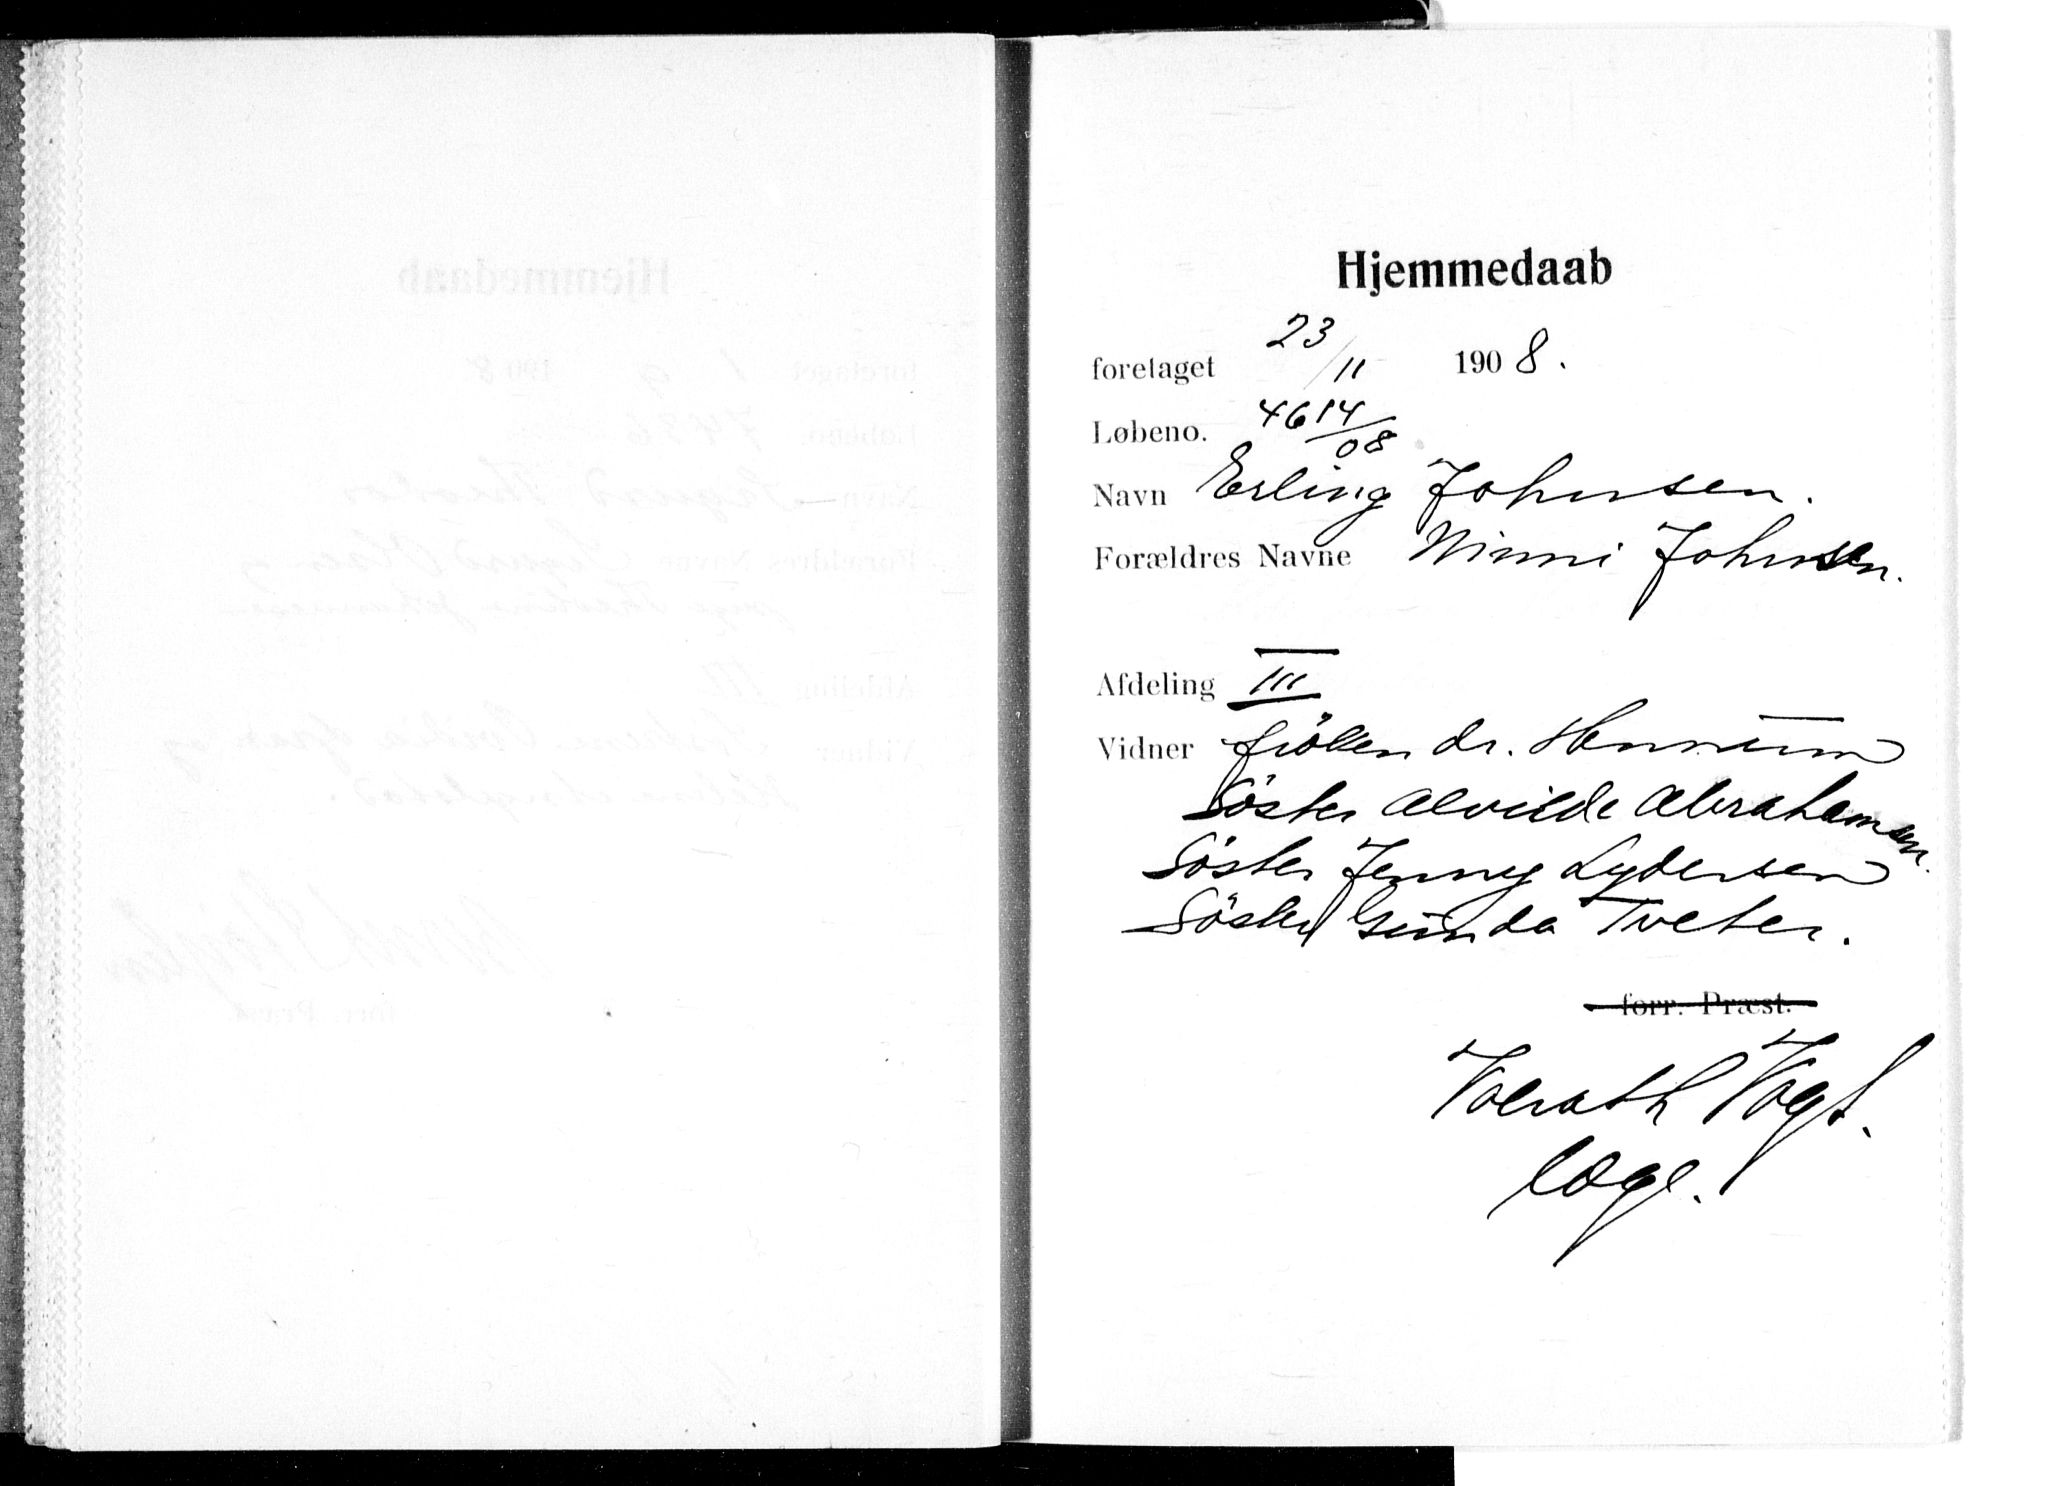 Hjemmedaab
foretaget 23/11 1908.
Løbeno. 4614/08
Navn Erling Johnsen.
Forældres Navne Winni Johnsen.
Afdeling III
Vidner fröken dr. Hennum
Söster Alvilde Abrahamsen.
Söster Jenny Lydersen
Söster Gunda Tveter.
forr. Præst.
Volrath Vogt.
læge.